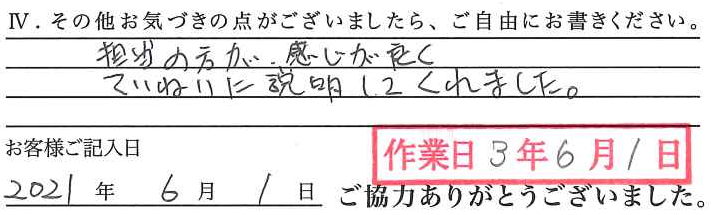 Ⅳ．その他お気づきの点がございましたら、ご自由にお書きください。
担当の方が、感じが良く
ていねいに説明してくれました。
お客様ご記入日
作業日 3年6月1日
2021年 6月 1日 ご協力ありがとうございました。